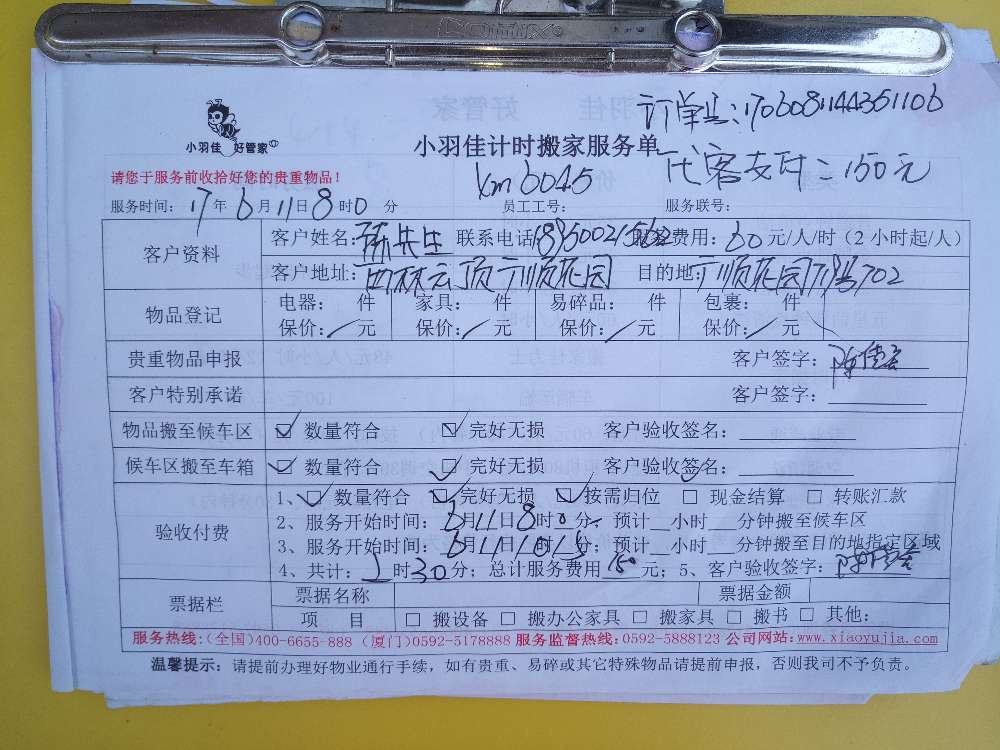 订单号:170608114435110b
小羽佳 好管家
小羽佳计时搬家服务单
代客支付:150元
请您于服务前收拾好您的贵重物品!
xm6045
服务时间: 17年6月11日8时0分 员工工号: 服务联号:
客户资料 客户姓名: 先生 联系电话 服务费用:60元/人/时(2小时起/人)
客户地址: 云顶 顺花园 目的地: 顺花园 702
物品登记 电器: 件 家具: 件 易碎品: 件 包裹: 件
保价: 元 保价: 元 保价: 元 保价: 元
贵重物品申报 客户签字:
客户特别承诺 客户签字:
物品搬至候车区 ☑ 数量符合 ☑ 完好无损 客户验收签名:
候车区搬至车箱 ☑ 数量符合 ☑ 完好无损 客户验收签名:
验收付费 1、☑ 数量符合 ☑ 完好无损 ☑ 按需归位 □ 现金结算 □ 转账汇款
2、服务开始时间:6月11日8时0分,预计__小时__分钟搬至候车区
3、服务开始时间:6月11 预计__小时__分钟搬至目的地指定区域
4、共计: 时30分;总计服务费用150元;5、客户验收签字:
票据栏 票据名称 票据金额
项 目 □ 搬设备 □ 搬办公家具 □ 搬家具 □ 搬书 □ 其他:
服务热线:(全国)400-6655-888 (厦门)0592-5178888 服务监督热线:0592-5888123 公司网站:www.xiaoyujia.com
温馨提示:请提前办理好物业通行手续,如有贵重、易碎或其它特殊物品请提前申报,否则我司不予负责。